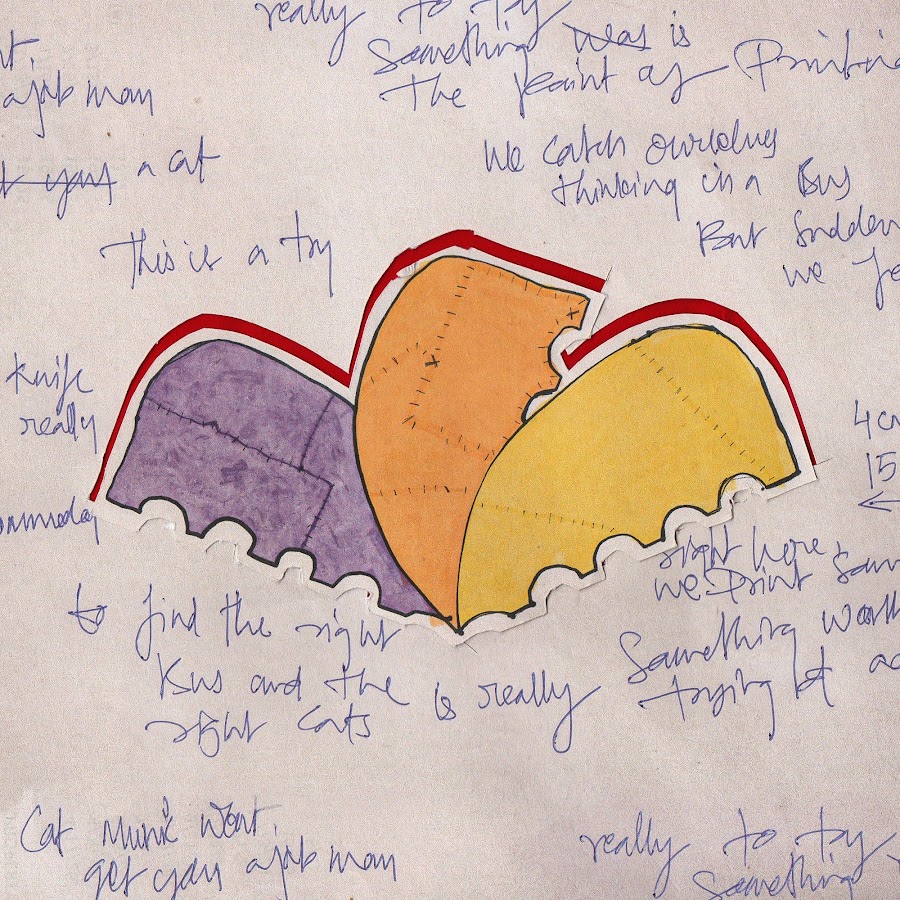 really to try
Something was is
The point of Printin
nt.
a job man
a cat
We catch ourselves
thinking in a Bus
But Sudden
we fe
This is a try
Knife
really
4cm
15
right here,
we Print Som
to find the right
Bus and the
right Cats
is really
Something worth
trying
Cat Munk Wont.
get you a job man
really to try
Something